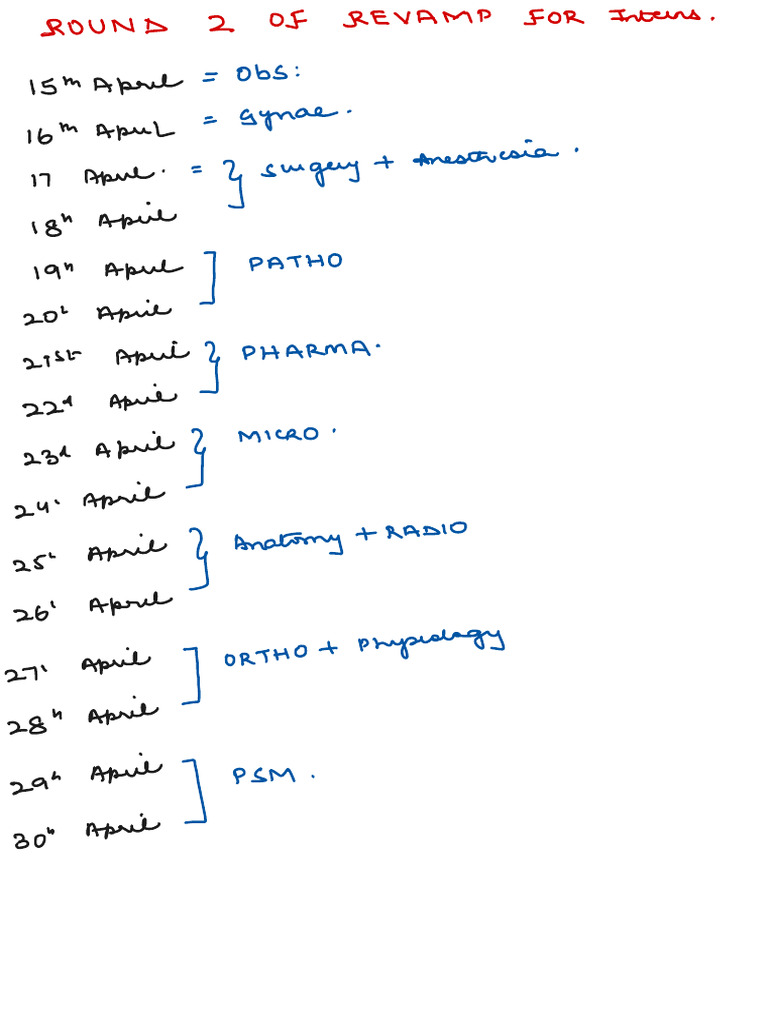 ROUND 2 OF REVAMP FOR Interns.
15th April = Obs:
16th April = Gynae.
17 April. = } Surgery + Anesthesia.
18th April
19th April ] PATHO
20th April
21st April } PHARMA.
22nd April
23rd April } MICRO.
24th April
25th April } Anatomy + RADIO
26th April
27th April ] ORTHO + Physiology
28th April
29th April ] PSM.
30th April